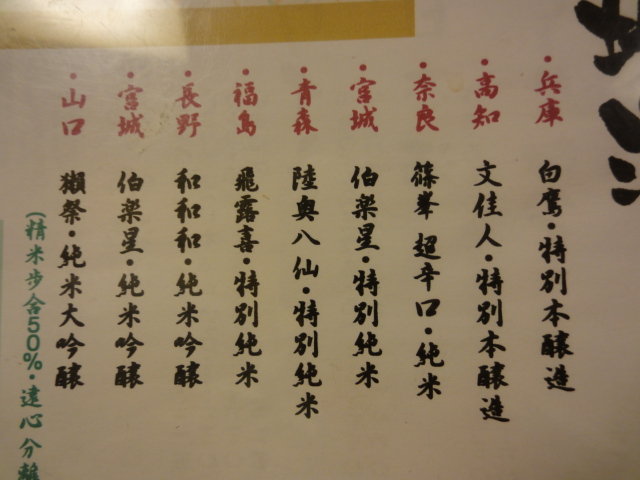 ・兵庫 白鷹・特別本醸造
・高知 文佳人・特別本醸造
・奈良 篠峯 超辛口・純米
・宮城 伯楽星・特別純米
・青森 陸奥八仙・特別純米
・福島 飛露喜・特別純米
・長野 和和和・純米吟醸
・宮城 伯楽星・純米吟醸
・山口 獺祭・純米大吟醸
(精米歩合50%・遠心分離